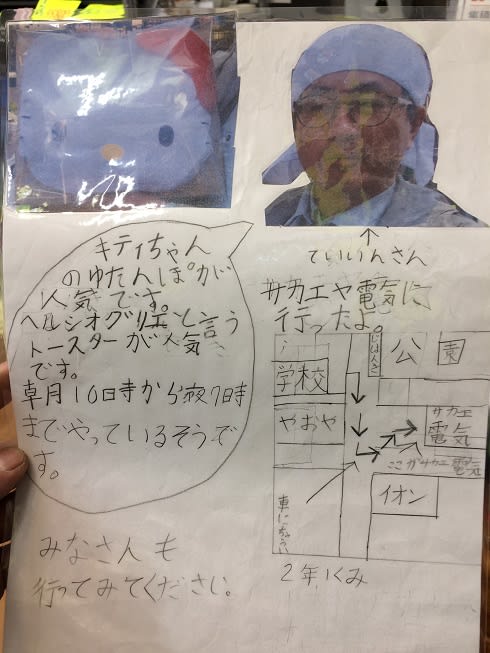 キティちゃん
のゆたんぽが
人気です。
ヘルシオグリエと言う
トースターが人気
です。
朝10時から夜7時
までやっているそうで
す。
みなさんも
行ってみてください。
ていいんさん
サカエや電気に
行ったよ。
学校
じはんき
公園
やおや
サカエ
電気
ここがサカエ電気
イオン
車にちゅうい
2年1くみ